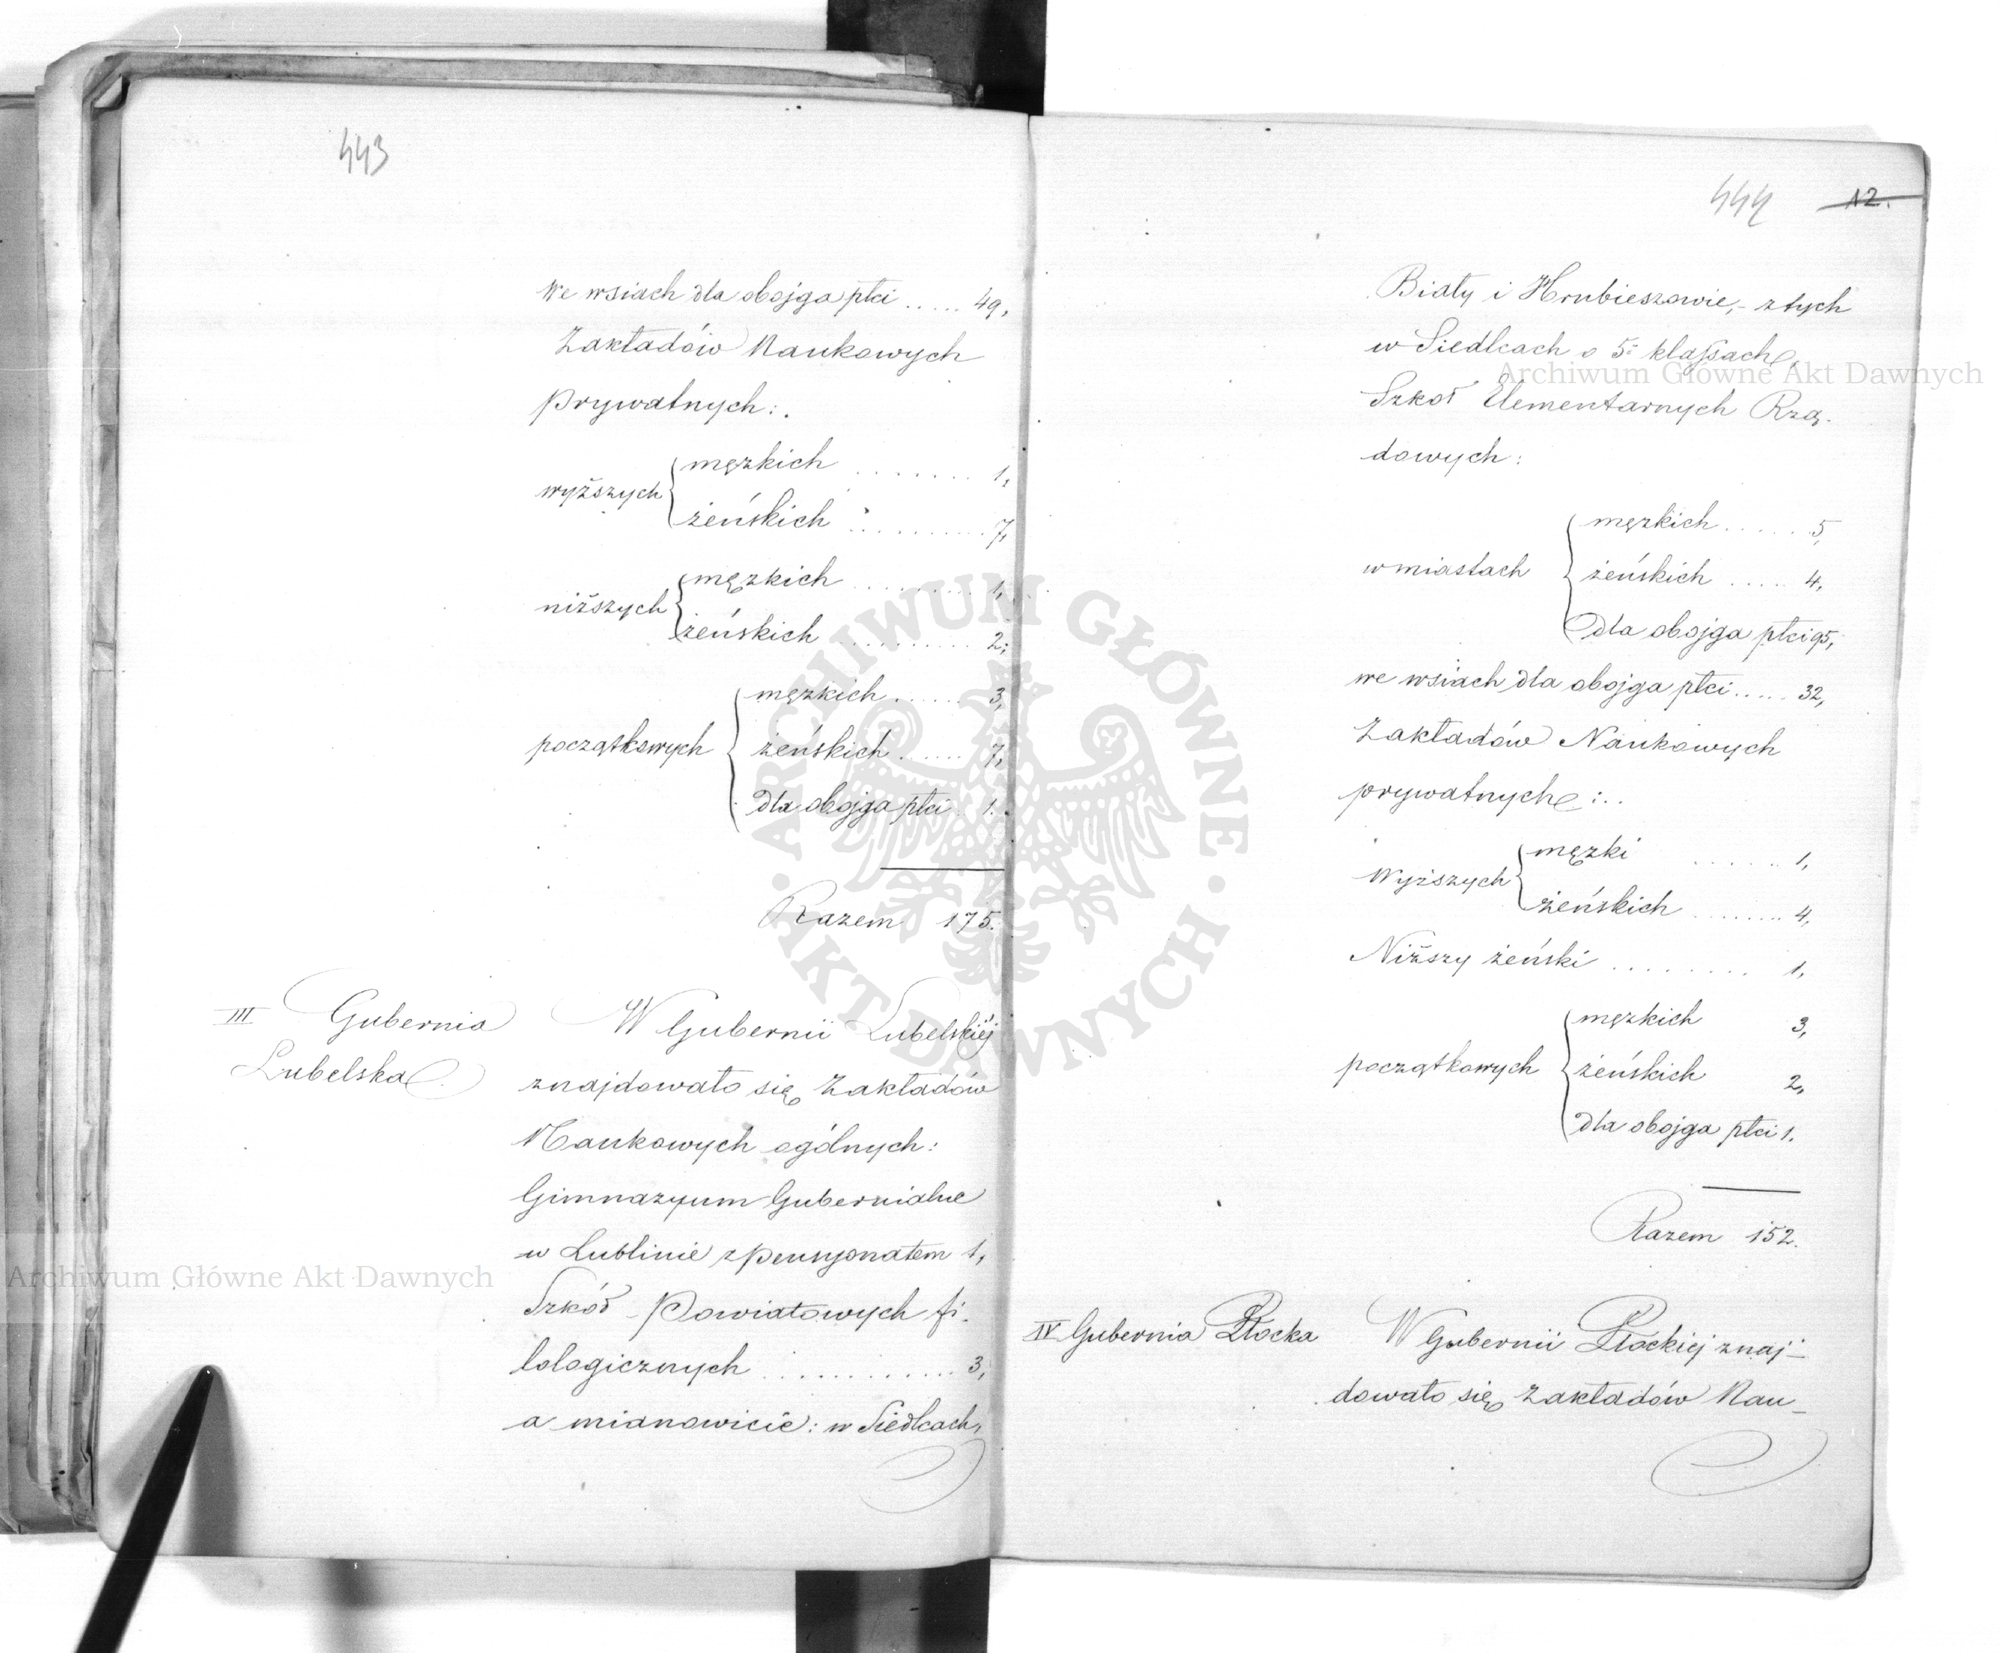 443
we wsiach dla obojga płci ..... 49,
Zakładów Naukowych
prywatnych:.
wyższych { męzkich ........ 1,
żeńskich .......... 7,
niższych { męzkich ......... 1,
żeńskich ......... 2,
początkowych { męzkich ...... 3,
żeńskich ...... 7,
dla obojga płci . 1.
Razem 175.
III Gubernia
Lubelska.
W Gubernii Lubelskiéj
znajdowało się Zakładów
Naukowych ogólnych:
Gimnazyum Gubernialne
w Lublinie z pensyonatem 1,
Szkół Powiatowych fi-
lologicznych ............ 3,
a mianowicie: w Siedlcach,
444 12.
Biały i Hrubieszowie, - z tych
w Siedlcach o 5. klassach,
Szkół Elementarnych Rzą-
dowych:
w miastach { męzkich ...... 5,
żeńskich ..... 4,
dla obojga płci 95,
we wsiach dla obojga płci ..... 32,
Zakładów Naukowych
prywatnych:..
Wyższych { męzki ...... 1,
żeńskich ........ 4,
Niższy żeński ........ 1,
początkowych { męzkich 3,
żeńskich 2,
dla obojga płci 1.
Razem 152.
IV Gubernia Płocka
W Gubernii Płockiej znaj-
dowało się Zakładów Nau-
Archiwum Główne Akt Dawnych
Archiwum Główne Akt Dawnych
ARCHIWUM GŁÓWNE · AKT DAWNYCH ·